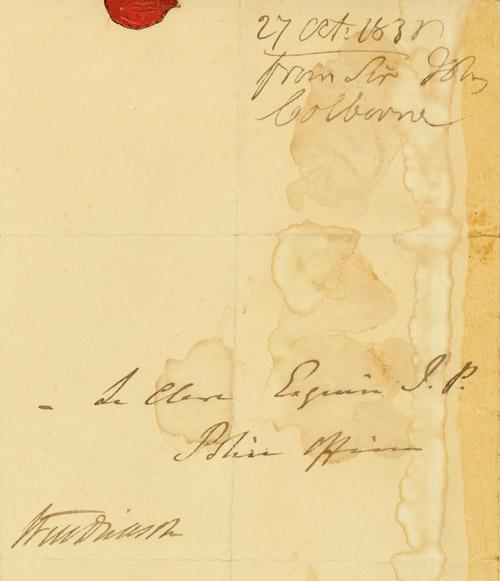 27 Oct. 1838
from Sir John
Colborne
- Le Clere Esquire J. P.
Police Office